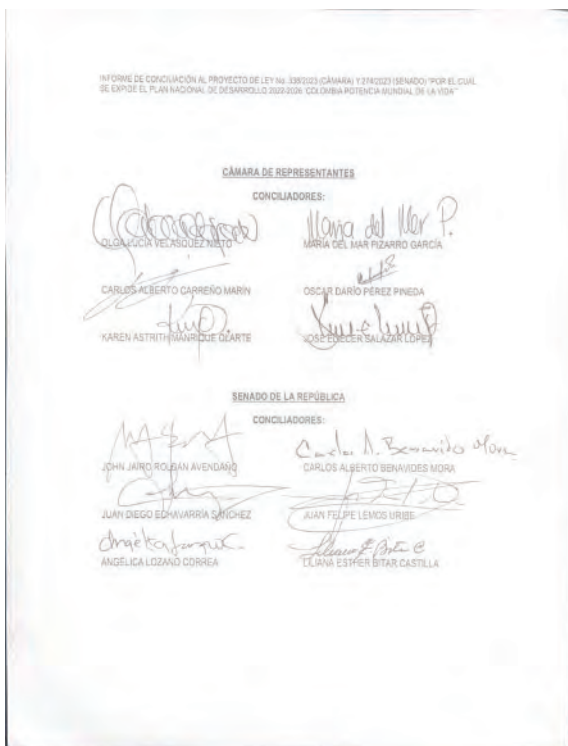 INFORME DE CONCILIACIÓN AL PROYECTO DE LEY No. 338/2023 (CÁMARA) Y 274/2023 (SENADO) "POR EL CUAL
SE EXPIDE EL PLAN NACIONAL DE DESARROLLO 2022-2026 "COLOMBIA POTENCIA MUNDIAL DE LA VIDA"
CÁMARA DE REPRESENTANTES
CONCILIADORES:
Maria del Mar P.
OLGA LUCÍA VELÁSQUEZ NIETO MARÍA DEL MAR PIZARRO GARCÍA
CARLOS ALBERTO CARREÑO MARIN OSCAR DARÍO PÉREZ PINEDA
KAREN ASTRITH MANRIQUE OLARTE JOSÉ ELIECER SALAZAR LÓPEZ
SENADO DE LA REPÚBLICA
CONCILIADORES:
Carlos A. Benavides Mora
JOHN JAIRO ROLDAN AVENDAÑO CARLOS ALBERTO BENAVIDES MORA
JUAN DIEGO ECHAVARRÍA SÁNCHEZ JUAN FELIPE LEMOS URIBE
ANGÉLICA LOZANO CORREA LILIANA ESTHER BITAR CASTILLA